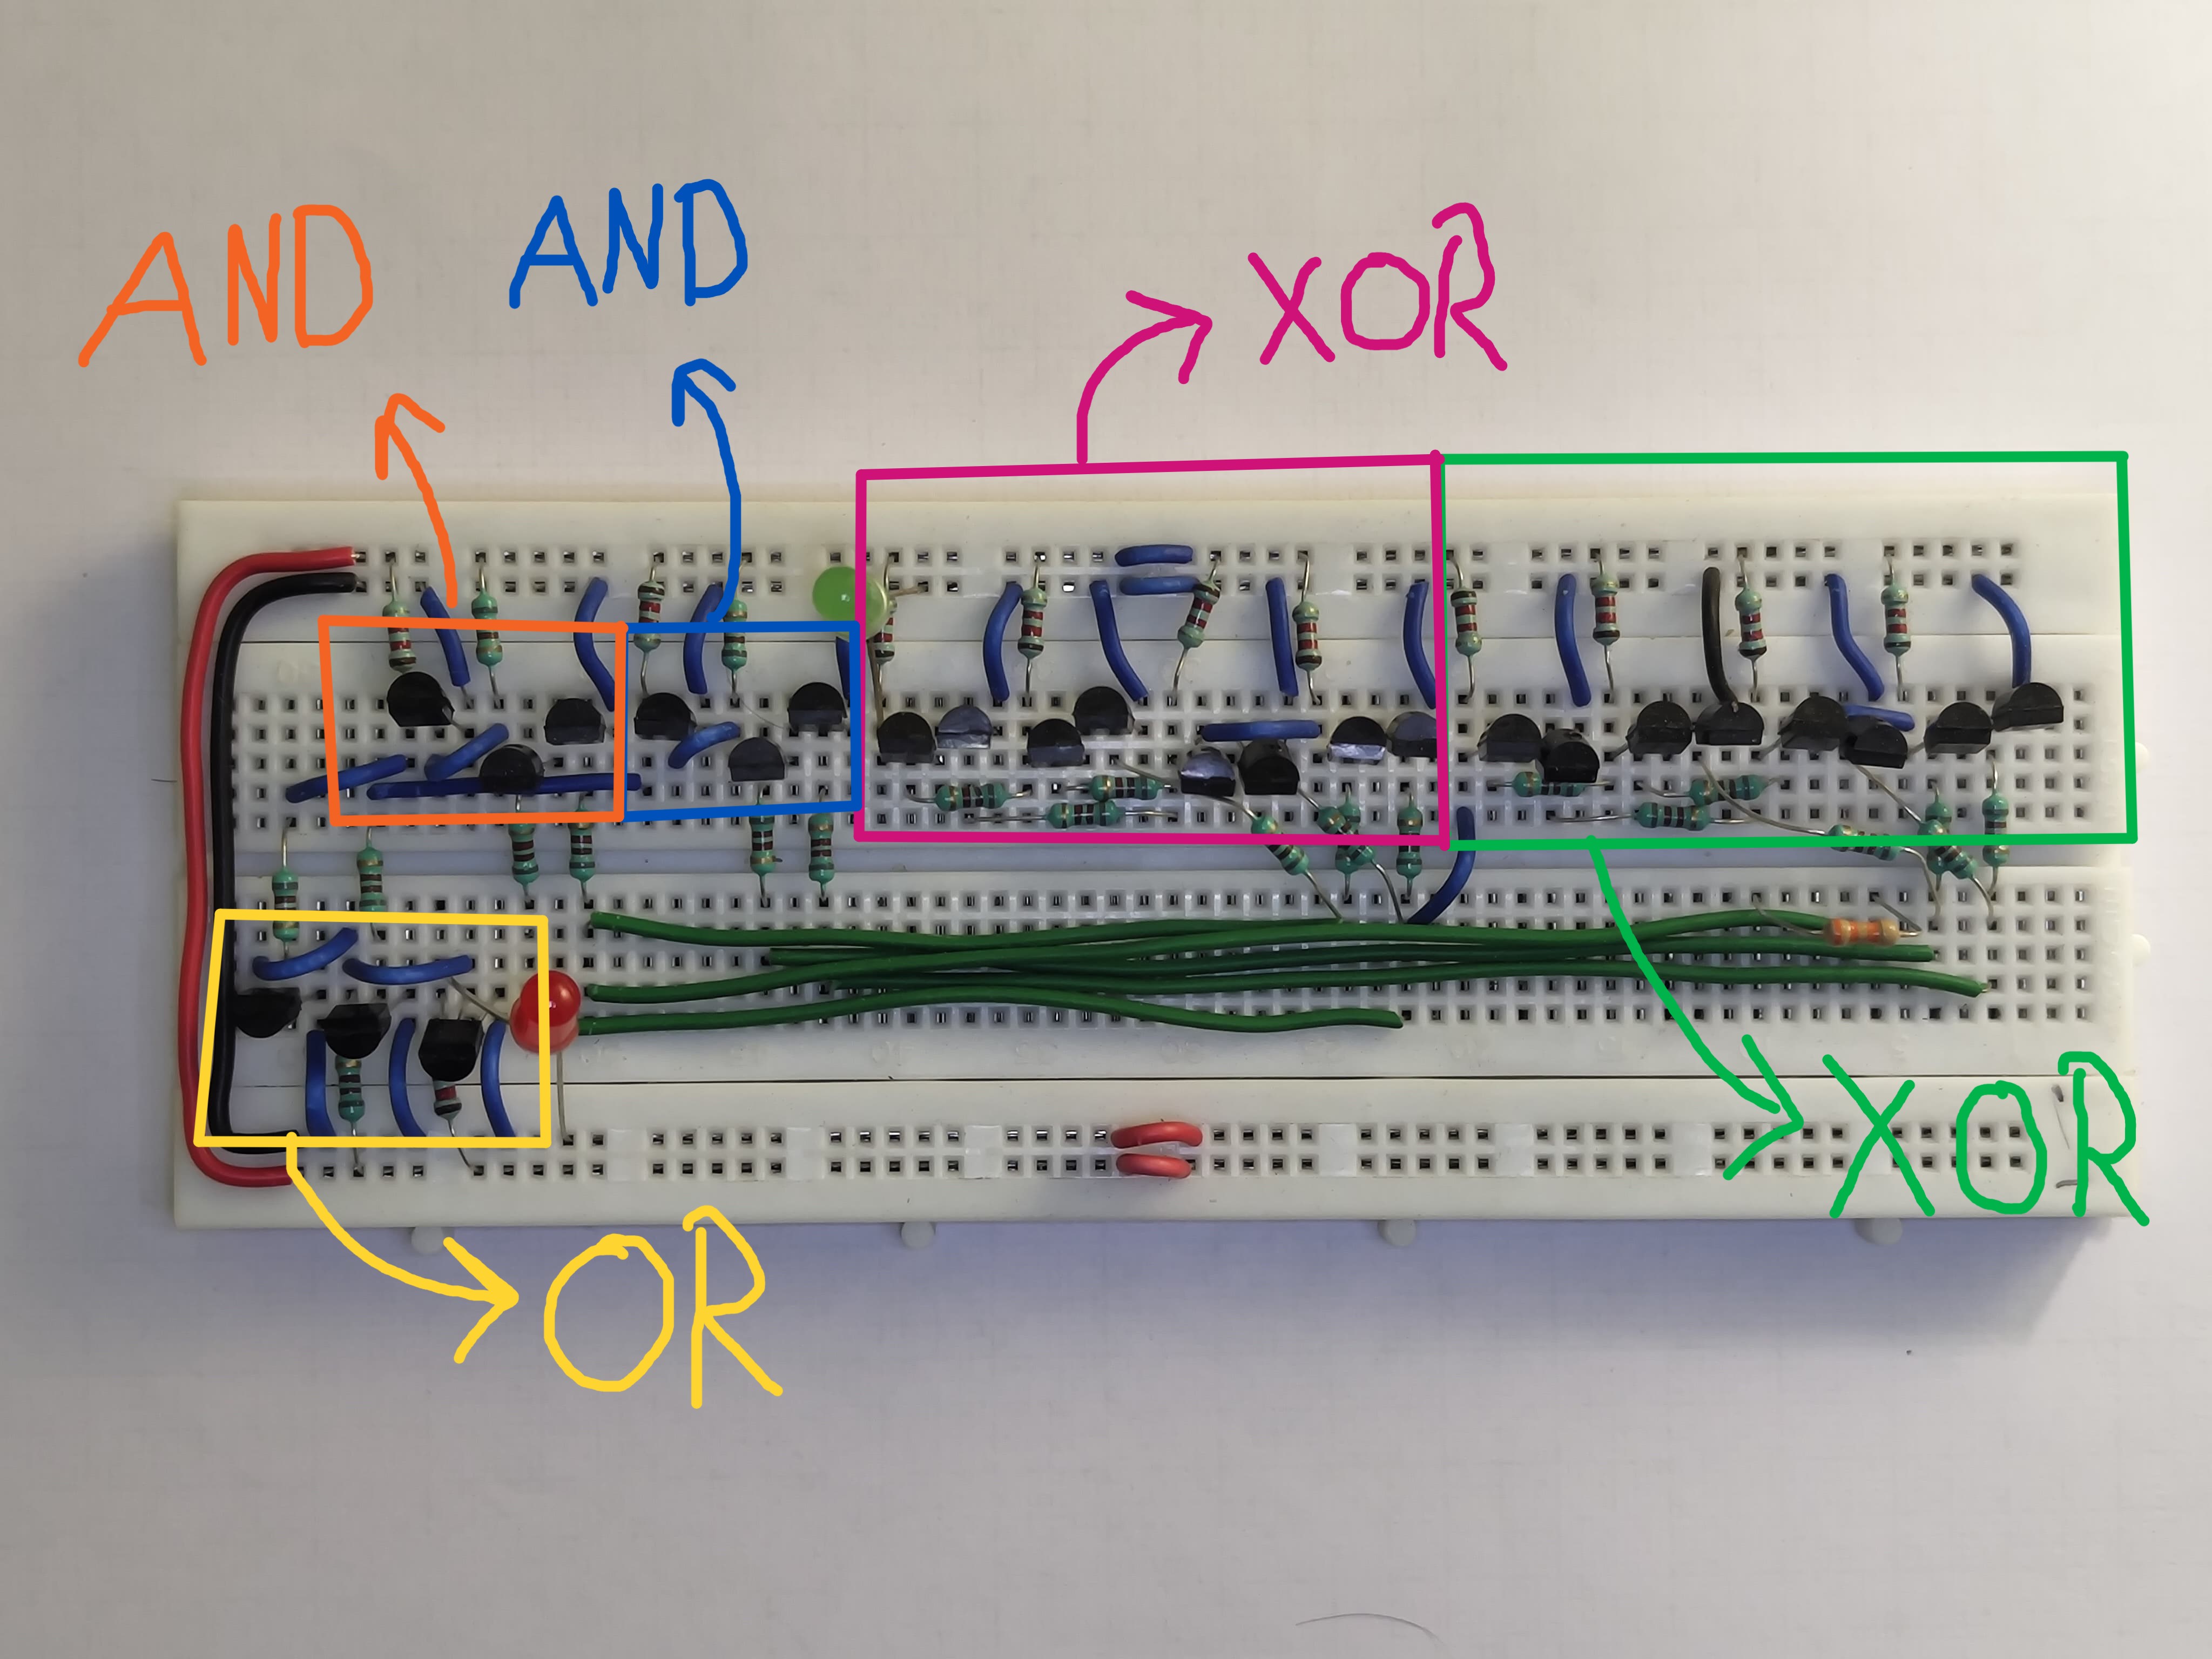 AND
AND
XOR
XOR
OR